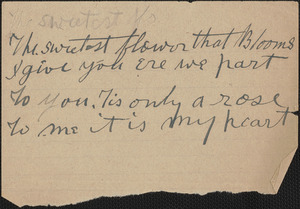 The sweetest flo
The sweetest flower that Blooms
I give you Ere we part
To you. Tis only a rose
To me it is my heart